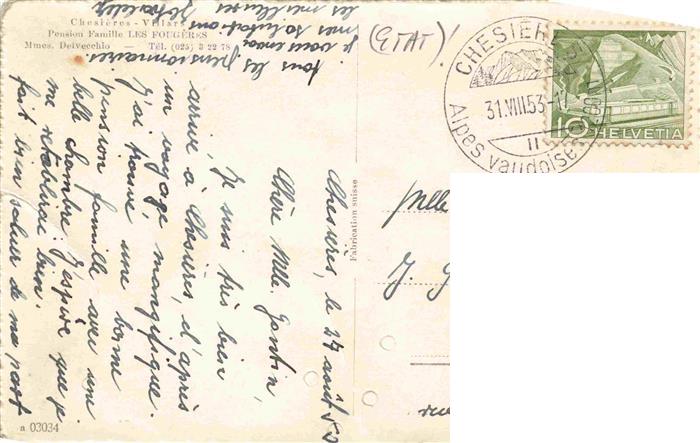 Chesières - Villars
Pension Famille LES FOUGÈRES
Mmes. Delvecchio — Tél. (025) 3 22 78
(ETAT)!
CHESIÈRES
31.VIII.53-1
Alpes vaudoises
10 HELVETIA
Fabrication suisse
Chesières, le 27 août 53
Chère Mlle. Gontin,
Je suis très bien
arrivé à Chesières, d'après
un voyage mangifique.
J'ai trouvé une bonne
pension famille avec une
belle chambre. J'espère que je
me rétablirai bien.
fait bien saluer de ma part
tous les pensionnaires
je vous envoie
mes salutations
les meilleures
Mlle
J. G
rue
a 03034